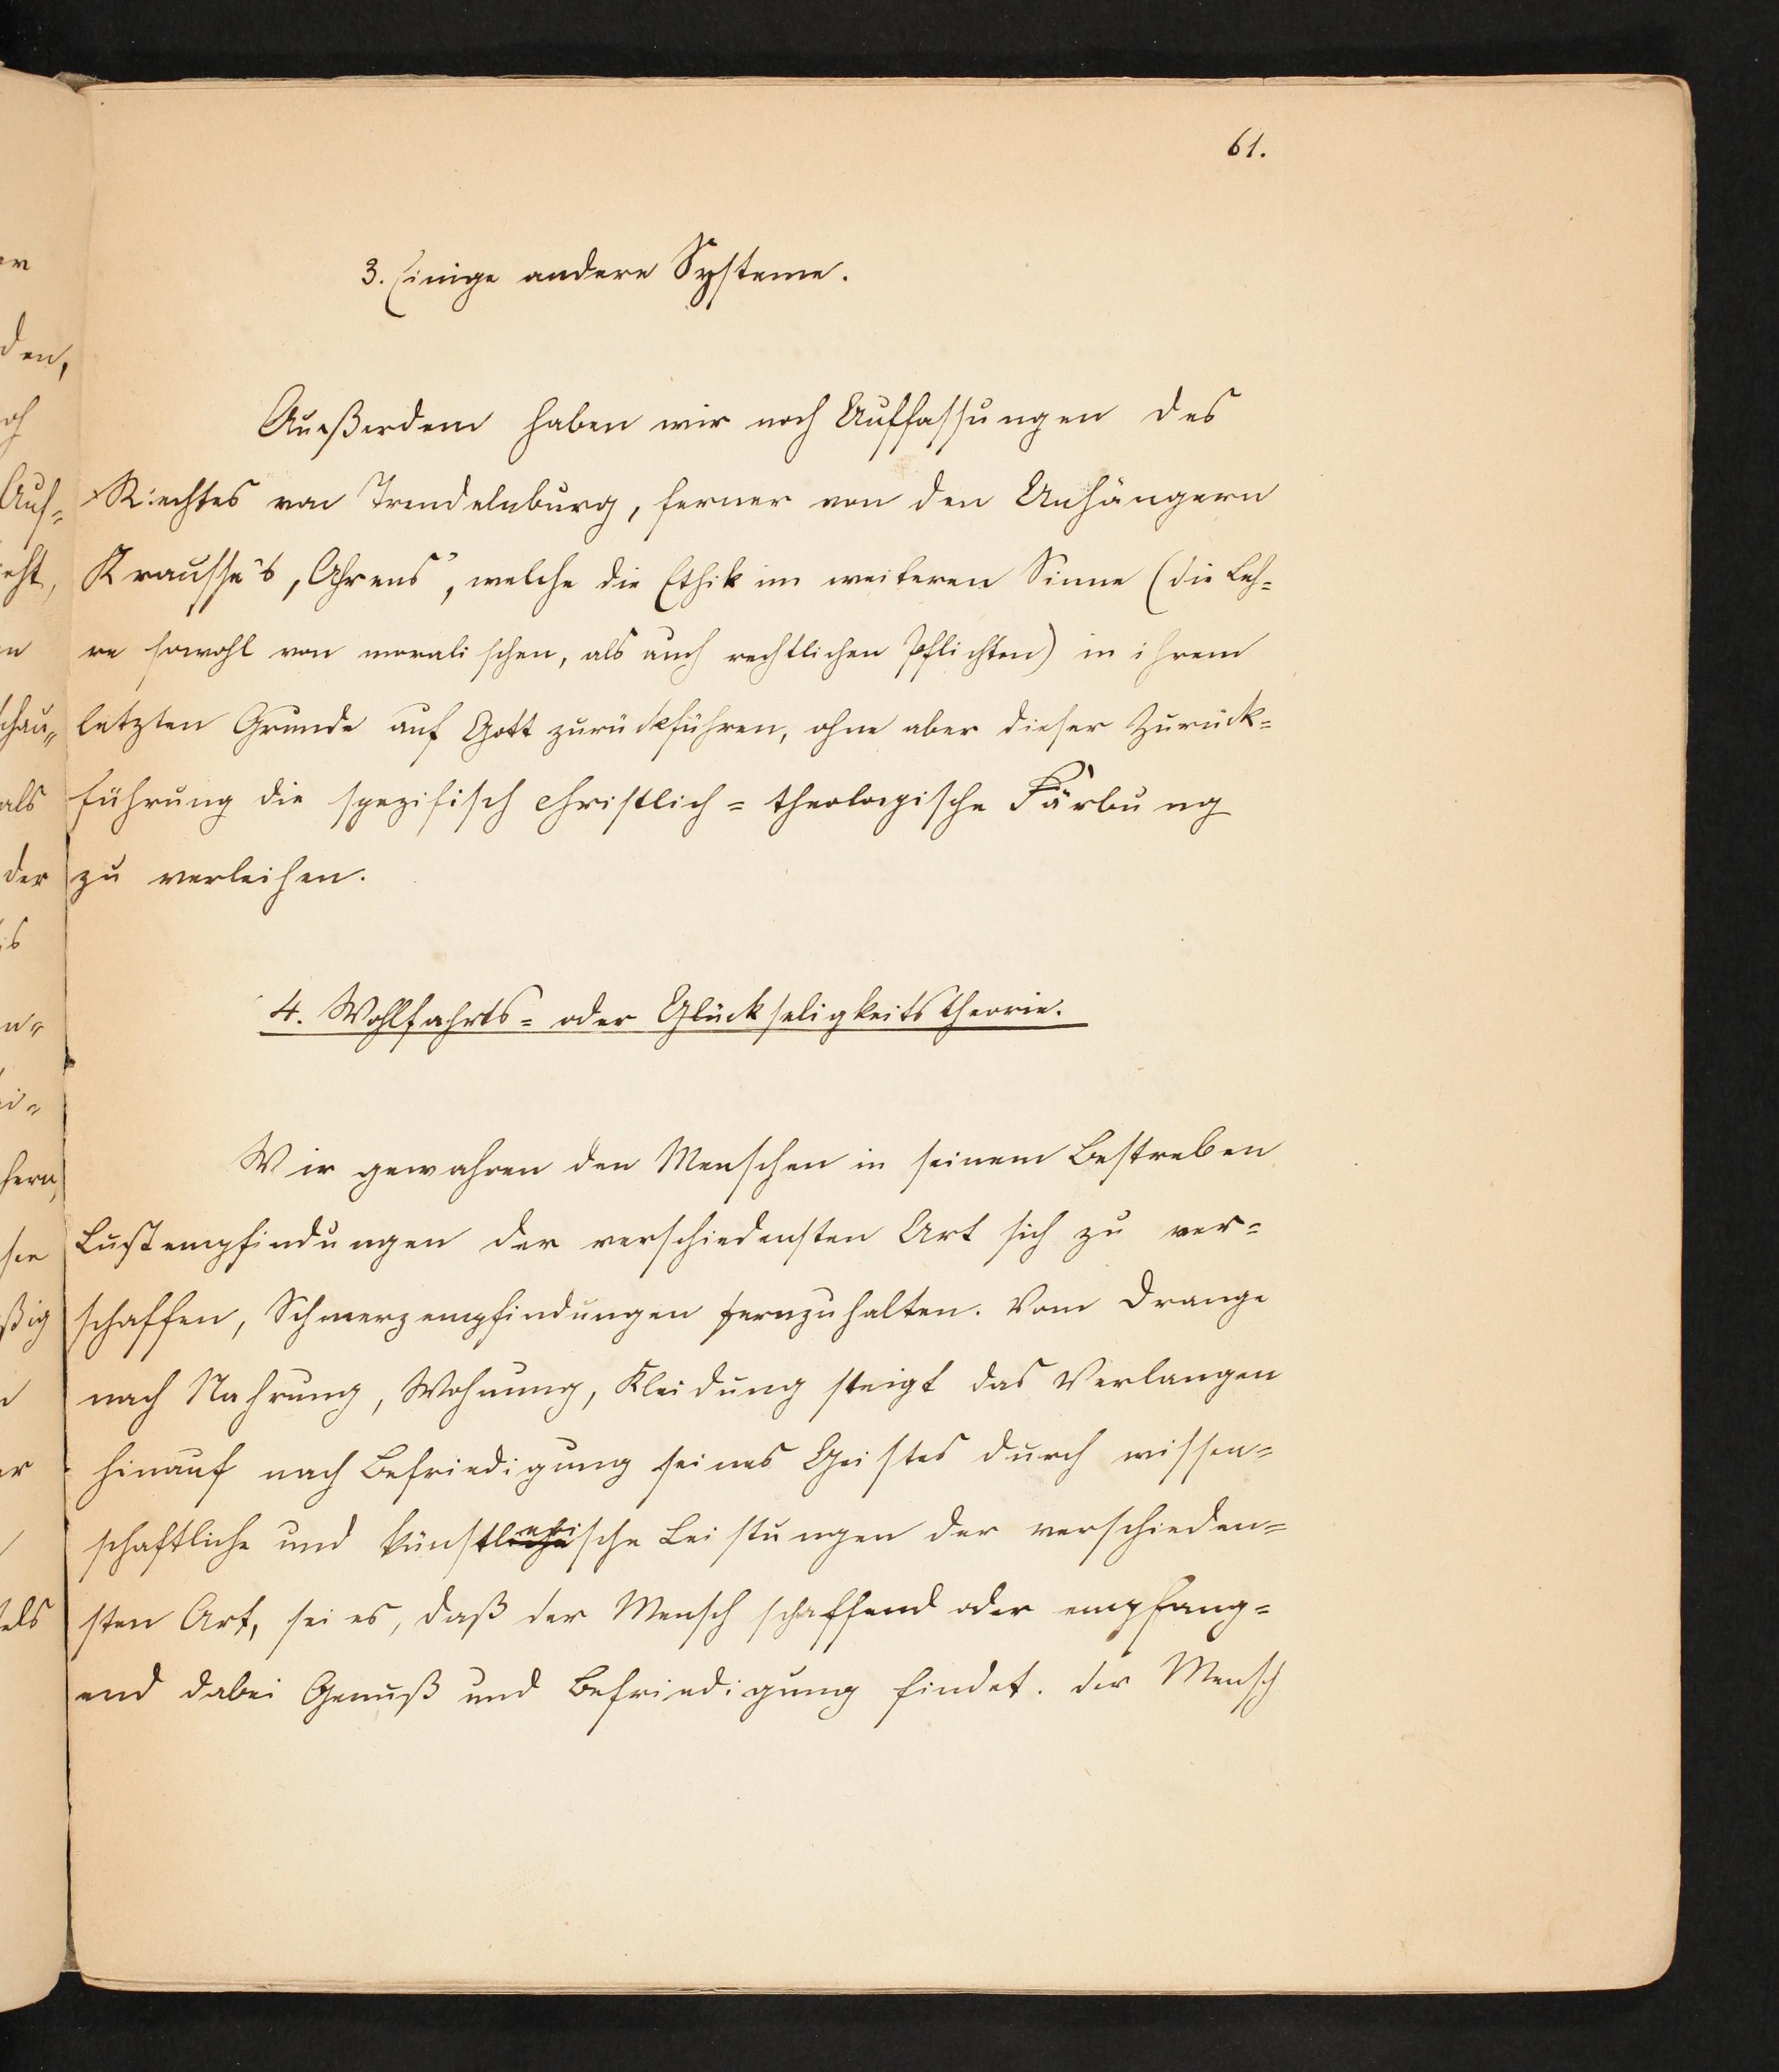 61.
3. Einige andere Systeme.
Außerdem haben wir noch Auffassungen des
Rechtes von Trendelenburg, ferner von den Anhängern
Krausse's, Ahrens', welche die Ethik im weiteren Sinne (die Leh-
re sowohl von moralischen, als auch rechtlichen Pflichten) in ihrem
letzten Grunde auf Gott zurückführen, ohne aber dieser Zurück-
führung die spezifisch christlich-theologische Färbung
zu verleihen.
4. Wohlfahrts- oder Glückseligkeitstheorie.
Wir gewahren den Menschen in seinem Bestreben
Lustempfindungen der verschiedensten Art sich zu ver-
schaffen, Schmerzempfindungen fernzuhalten. Vom Drange
nach Nahrung, Wohnung, Kleidung steigt das Verlangen
hinauf nach Befriedigung seines Geistes durch wissen-
schaftliche und künstlerische Leistungen der verschieden-
sten Art, sei es, daß der Mensch schaffend oder empfang-
end dabei Genuß und Befriedigung findet. Der Mensch